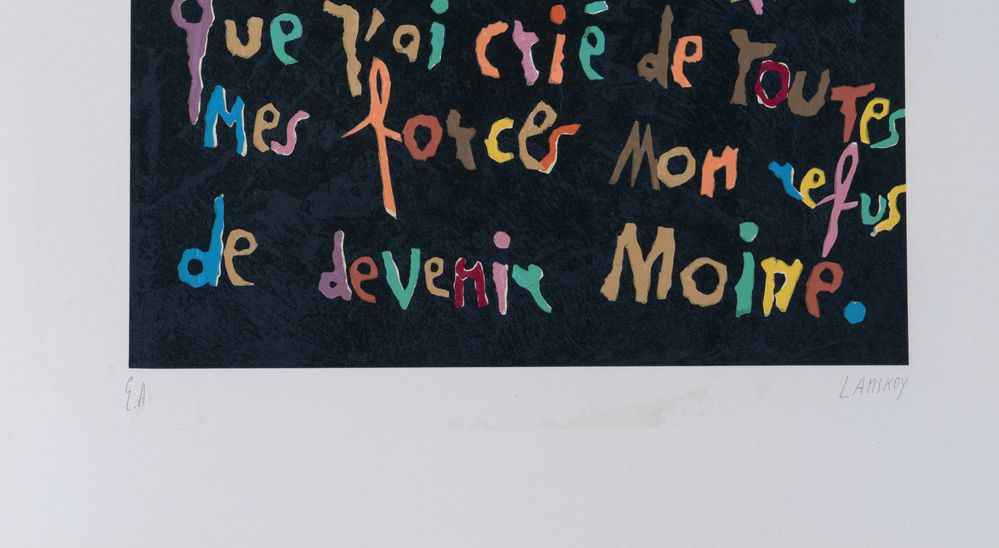 que j'ai crié de toutes
mes forces Mon refus
de devenir Moine.
E.A
LANSKOY